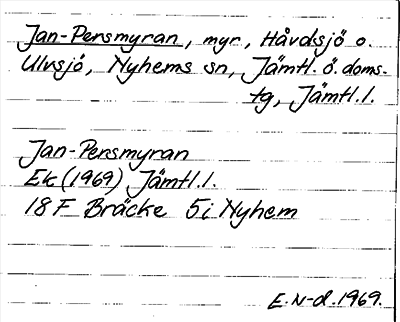 Jan-Persmyran, myr, Håvdsjö o.
Ulvsjö, Nyhems sn, Jämtl. ö. doms.
tg, Jämtl.l.
Jan-Persmyran
Ek (1969) Jämtl.l.
18 F Bräcke 5i Nyhem
E. N-d. 1969.